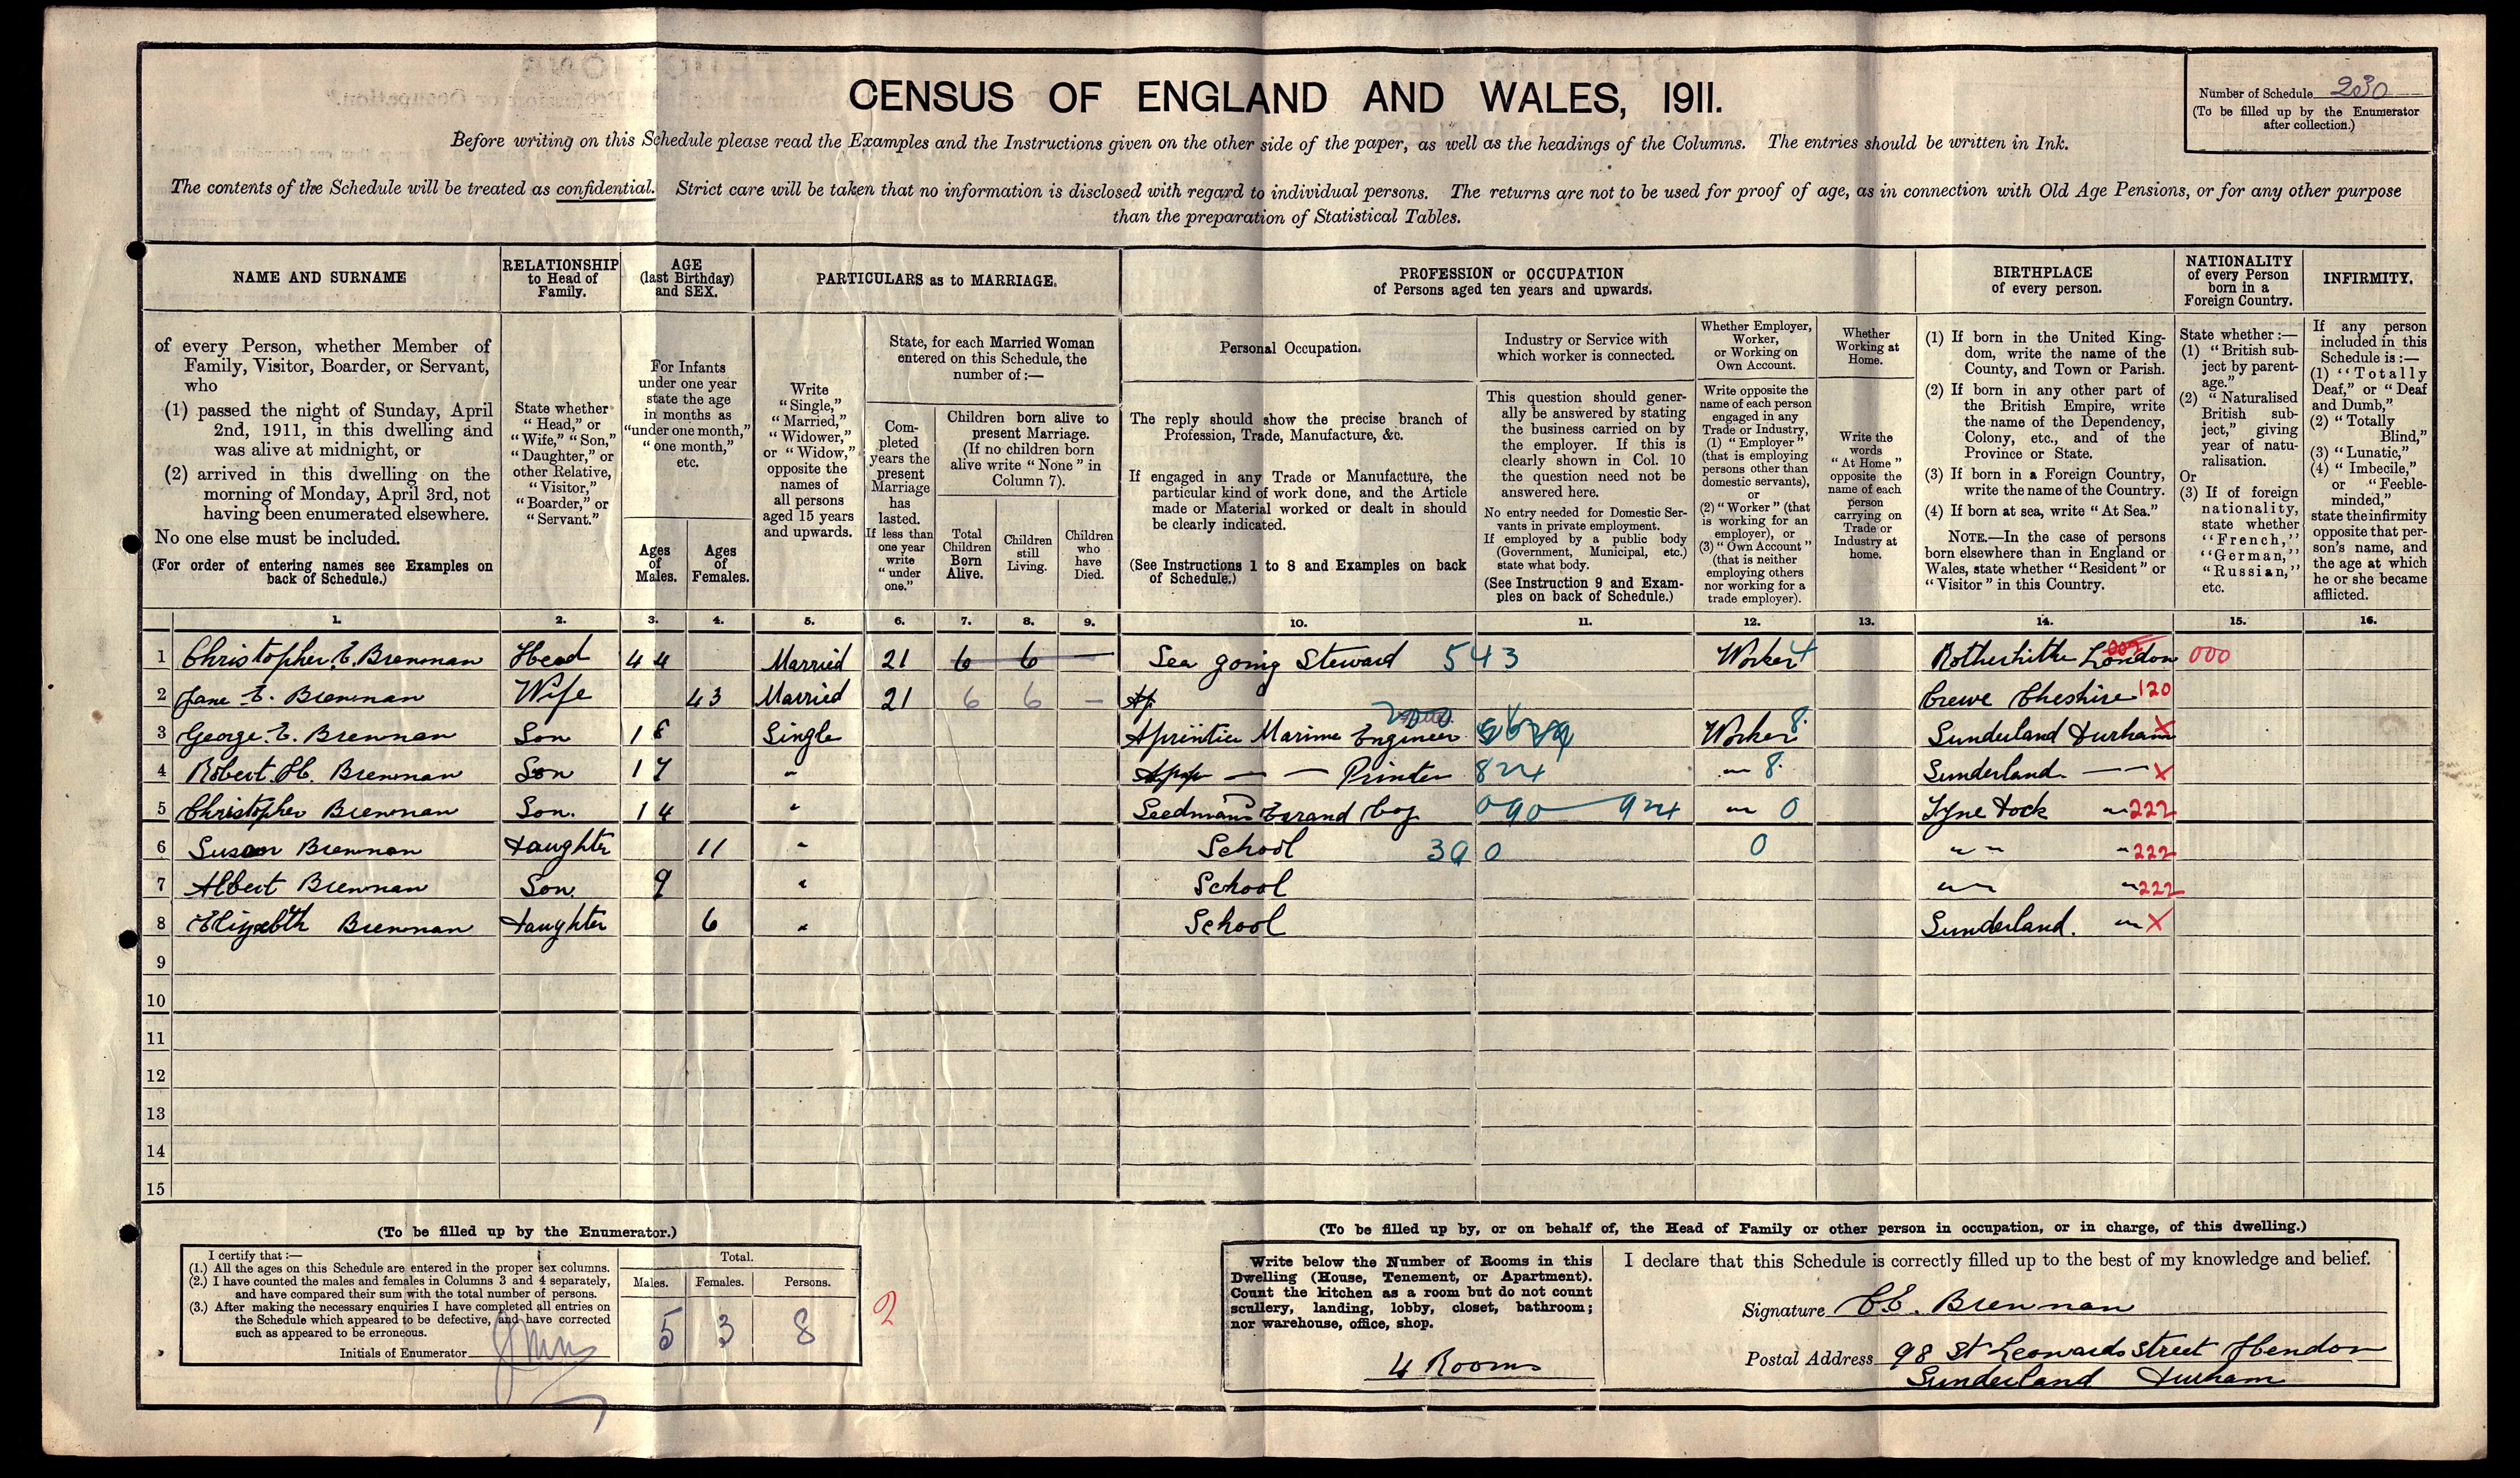 CENSUS OF ENGLAND AND WALES, 1911.
Number of Schedule 230
(To be filled up by the Enumerator
after collection.)
Before writing on this Schedule please read the Examples and the Instructions given on the other side of the paper, as well as the headings of the Columns. The entries should be written in Ink.
The contents of the Schedule will be treated as confidential. Strict care will be taken that no information is disclosed with regard to individual persons. The returns are not to be used for proof of age, as in connection with Old Age Pensions, or for any other purpose
than the preparation of Statistical Tables.
NAME AND SURNAME
of every Person, whether Member of
Family, Visitor, Boarder, or Servant,
who
(1) passed the night of Sunday, April
2nd, 1911, in this dwelling and
was alive at midnight, or
(2) arrived in this dwelling on the
morning of Monday, April 3rd, not
having been enumerated elsewhere.
No one else must be included.
(For order of entering names see Examples on
back of Schedule.)
RELATIONSHIP
to Head of
Family.
State whether
"Head," or
"Wife," "Son,"
"Daughter," or
other Relative,
"Visitor,"
"Boarder," or
"Servant."
AGE
(last Birthday)
and SEX.
For Infants
under one year
state the age
in months as
"under one month,"
"one month,"
etc.
Ages
of
Males.
Ages
of
Females.
PARTICULARS as to MARRIAGE.
Write
"Single,"
"Married,"
"Widower,"
or "Widow,"
opposite the
names of
all persons
aged 15 years
and upwards.
State, for each Married Woman
entered on this Schedule, the
number of :—
Com-
pleted
years the
present
Marriage
has
lasted.
If less than
one year
write
"under
one."
Children born alive to
present Marriage.
(If no children born
alive write "None" in
Column 7).
Total
Children
Born
Alive.
Children
still
Living.
Children
who
have
Died.
PROFESSION or OCCUPATION
of Persons aged ten years and upwards.
Personal Occupation.
The reply should show the precise branch of
Profession, Trade, Manufacture, &c.
If engaged in any Trade or Manufacture, the
particular kind of work done, and the Article
made or Material worked or dealt in should
be clearly indicated.
(See Instructions 1 to 8 and Examples on back
of Schedule.)
Industry or Service with
which worker is connected.
This question should gener-
ally be answered by stating
the business carried on by
the employer. If this is
clearly shown in Col. 10
the question need not be
answered here.
No entry needed for Domestic Ser-
vants in private employment.
If employed by a public body
(Government, Municipal, etc.)
state what body.
(See Instruction 9 and Exam-
ples on back of Schedule.)
Whether Employer,
Worker,
or Working on
Own Account.
Write opposite the
name of each person
engaged in any
Trade or Industry,
(1) "Employer"
(that is employing
persons other than
domestic servants),
or
(2) "Worker" (that
is working for an
employer), or
(3) "Own Account"
(that is neither
employing others
nor working for a
trade employer).
Whether
Working at
Home.
Write the
words
"At Home"
opposite the
name of each
person
carrying on
Trade or
Industry at
home.
BIRTHPLACE
of every person.
(1) If born in the United King-
dom, write the name of the
County, and Town or Parish.
(2) If born in any other part of
the British Empire, write
the name of the Dependency,
Colony, etc., and of the
Province or State.
(3) If born in a Foreign Country,
write the name of the Country.
(4) If born at sea, write "At Sea."
NOTE.—In the case of persons
born elsewhere than in England or
Wales, state whether "Resident" or
"Visitor" in this Country.
NATIONALITY
of every Person
born in a
Foreign Country.
State whether :—
(1) "British sub-
ject by parent-
age."
(2) "Naturalised
British sub-
ject," giving
year of natu-
ralisation.
Or
(3) If of foreign
nationality,
state whether
"French,"
"German,"
"Russian,"
etc.
INFIRMITY.
If any person
included in this
Schedule is :—
(1) "Totally
Deaf," or "Deaf
and Dumb,"
(2) "Totally
Blind,"
(3) "Lunatic,"
(4) "Imbecile,"
or "Feeble-
minded,"
state the infirmity
opposite that per-
son's name, and
the age at which
he or she became
afflicted.
1. 2. 3. 4. 5. 6. 7. 8. 9. 10. 11. 12. 13. 14. 15. 16.
1 Christopher E. Brennan Head 44 Married 21 6 6 — Sea going Steward 543 Worker 4 Rotherhithe London 000
2 Jane E. Brennan Wife 43 Married 21 6 6 – Ap Crewe Cheshire 120
3 George E. Brennan Son 18 Single Aprintice Marine Engineer Worker 8 Sunderland Durham X
4 Robert H. Brennan Son 17 " — — Printer 824 " 8 Sunderland — X
5 Christopher Brennan Son. 14 " Seedmans Errand Boy 090 924 " 0 Tyne Dock " 222
6 Susan Brennan Daughter 11 " School 390 0 " " " 222
7 Albert Brennan Son. 9 " School " " " 222
8 Elizabth Brennan Daughter 6 " School Sunderland. " X
9
10
11
12
13
14
15
(To be filled up by the Enumerator.)
I certify that :—
(1.) All the ages on this Schedule are entered in the proper sex columns.
(2.) I have counted the males and females in Columns 3 and 4 separately,
and have compared their sum with the total number of persons.
(3.) After making the necessary enquiries I have completed all entries on
the Schedule which appeared to be defective, and have corrected
such as appeared to be erroneous.
Initials of Enumerator
Total.
Males. Females. Persons.
5 3 8
2
(To be filled up by, or on behalf of, the Head of Family or other person in occupation, or in charge, of this dwelling.)
Write below the Number of Rooms in this
Dwelling (House, Tenement, or Apartment).
Count the kitchen as a room but do not count
scullery, landing, lobby, closet, bathroom;
nor warehouse, office, shop.
4 Rooms
I declare that this Schedule is correctly filled up to the best of my knowledge and belief.
Signature C.E. Brennan
Postal Address 98 St Leonards Street Hendon
Sunderland Durham